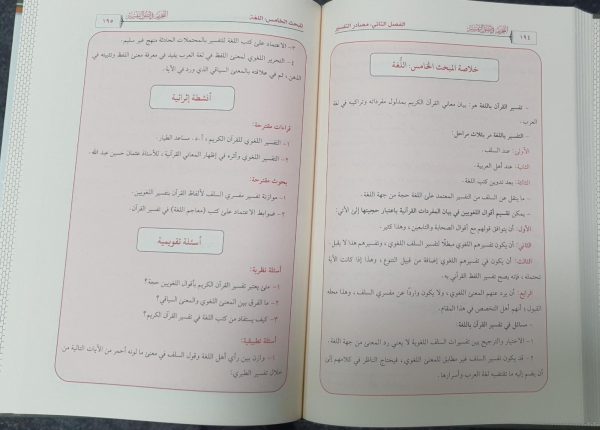 ١٩٤
الفصل الثاني: مصادر التفسير
خلاصة المبحث الخامس: اللُّغة
- تفسير القرآن باللغة هو: بيان معاني القرآن الكريم بمدلول مفرداته وتراكيبه في لغة
العرب.
- التفسير باللغة مر بثلاث مراحل:
الأولى: عند السلف.
الثانية: عند أهل العربية.
الثالثة: بعد تدوين كتب اللغة.
- ما ينقل عن السلف من التفسير المعتمد على اللغة حجة من جهة اللغة.
- يمكن تقسيم أقوال اللغويين في بيان المفردات القرآنية باعتبار حجيتها إلى الآتي:
الأول: أن يتوافق قولهم مع أقوال الصحابة والتابعين، وهذا كثير.
الثاني: أن يكون تفسيرهم اللغوي مبطلًا لتفسير السلف اللغوي، وتفسيرهم هذا لا يقبل.
الثالث: أن يكون في تفسيرهم اللغوي إضافة من قبيل التنوع، وهذا إذا كانت الآية
تحتمله، فإنه يصح تفسير اللفظ القرآني به.
الرابع: أن يرد عنهم المعنى اللغوي، ولا يكون واردًا عن مفسري السلف، وهذا محله
القبول؛ أنهم أهل التخصص في هذا المقام.
- مسائل في تفسير القرآن باللغة:
١- الاختيار والترجيح بين تفسيرات السلف اللغوية لا يعني رد المعنى من جهة اللغة.
٢- قد يكون تفسير السلف غير مطابق للمعنى اللغوي، فيحتاج الناظر في كلامهم إلى
أن يضم إليه ما تقتضيه لغة العرب وأسرارها.
المبحث الخامس: اللغة
١٩٥
٣- الاعتماد على كتب اللغة للتفسير بالمحتملات الحادثة منهج غير سليم.
٤- التحرير اللغوي لمعنى اللفظ في لغة العرب يفيد في معرفة معنى اللفظ وتثبيته في
الذهن، ثم في علاقته بالمعنى السياقي الذي ورد في الآية.
أنشطة إثرائية
قراءات مقترحة:
١- التفسير اللغوي للقرآن الكريم، أ.د. مساعد الطيار.
٢- التفسير اللغوي وأثره في إظهار المعاني القرآنية، للأستاذ عثمان حسين عبد الله.
بحوث مقترحة:
١- موازنة تفسير مفسري السلف لألفاظ القرآن بتفسير اللغويين.
٢- ضوابط الاعتماد على كتب (معاجم اللغة) في تفسير القرآن.
أسئلة تقويمية
أسئلة نظرية:
١- متى يعتبر تفسير القرآن الكريم بأقوال اللغويين حجة؟
٢- ما الفرق بين المعنى اللغوي والمعنى السياقي؟
٣- كيف يستفاد من كتب اللغة في تفسير القرآن الكريم؟
أسئلة تطبيقية:
١- وازن بين رأي أهل اللغة وقول السلف في معنى ما لونه أحمر من الآيات التالية من
خلال تفسير الطبري: